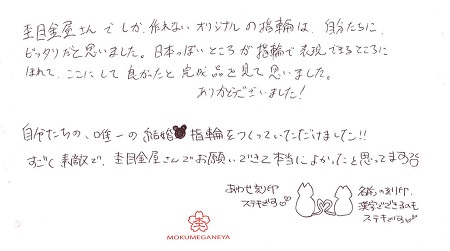 杢目金屋さんでしか作れないオリジナルの指輪は、自分たちに
ピッタリだと思いました。日本っぽいところが指輪で表現できるところに
ほれて、ここにして良かったと完成品を見て思いました。
ありがとうございました!
自分たちの、唯一の結婚指輪をつくっていただけました!!
すごく素敵で、杢目金屋さんでお願いできて本当によかったと思ってます
あわせ刻印
ステキです♡
名前の刻印、
漢字でできるのも
ステキです♡
MOKUMEGANEYA